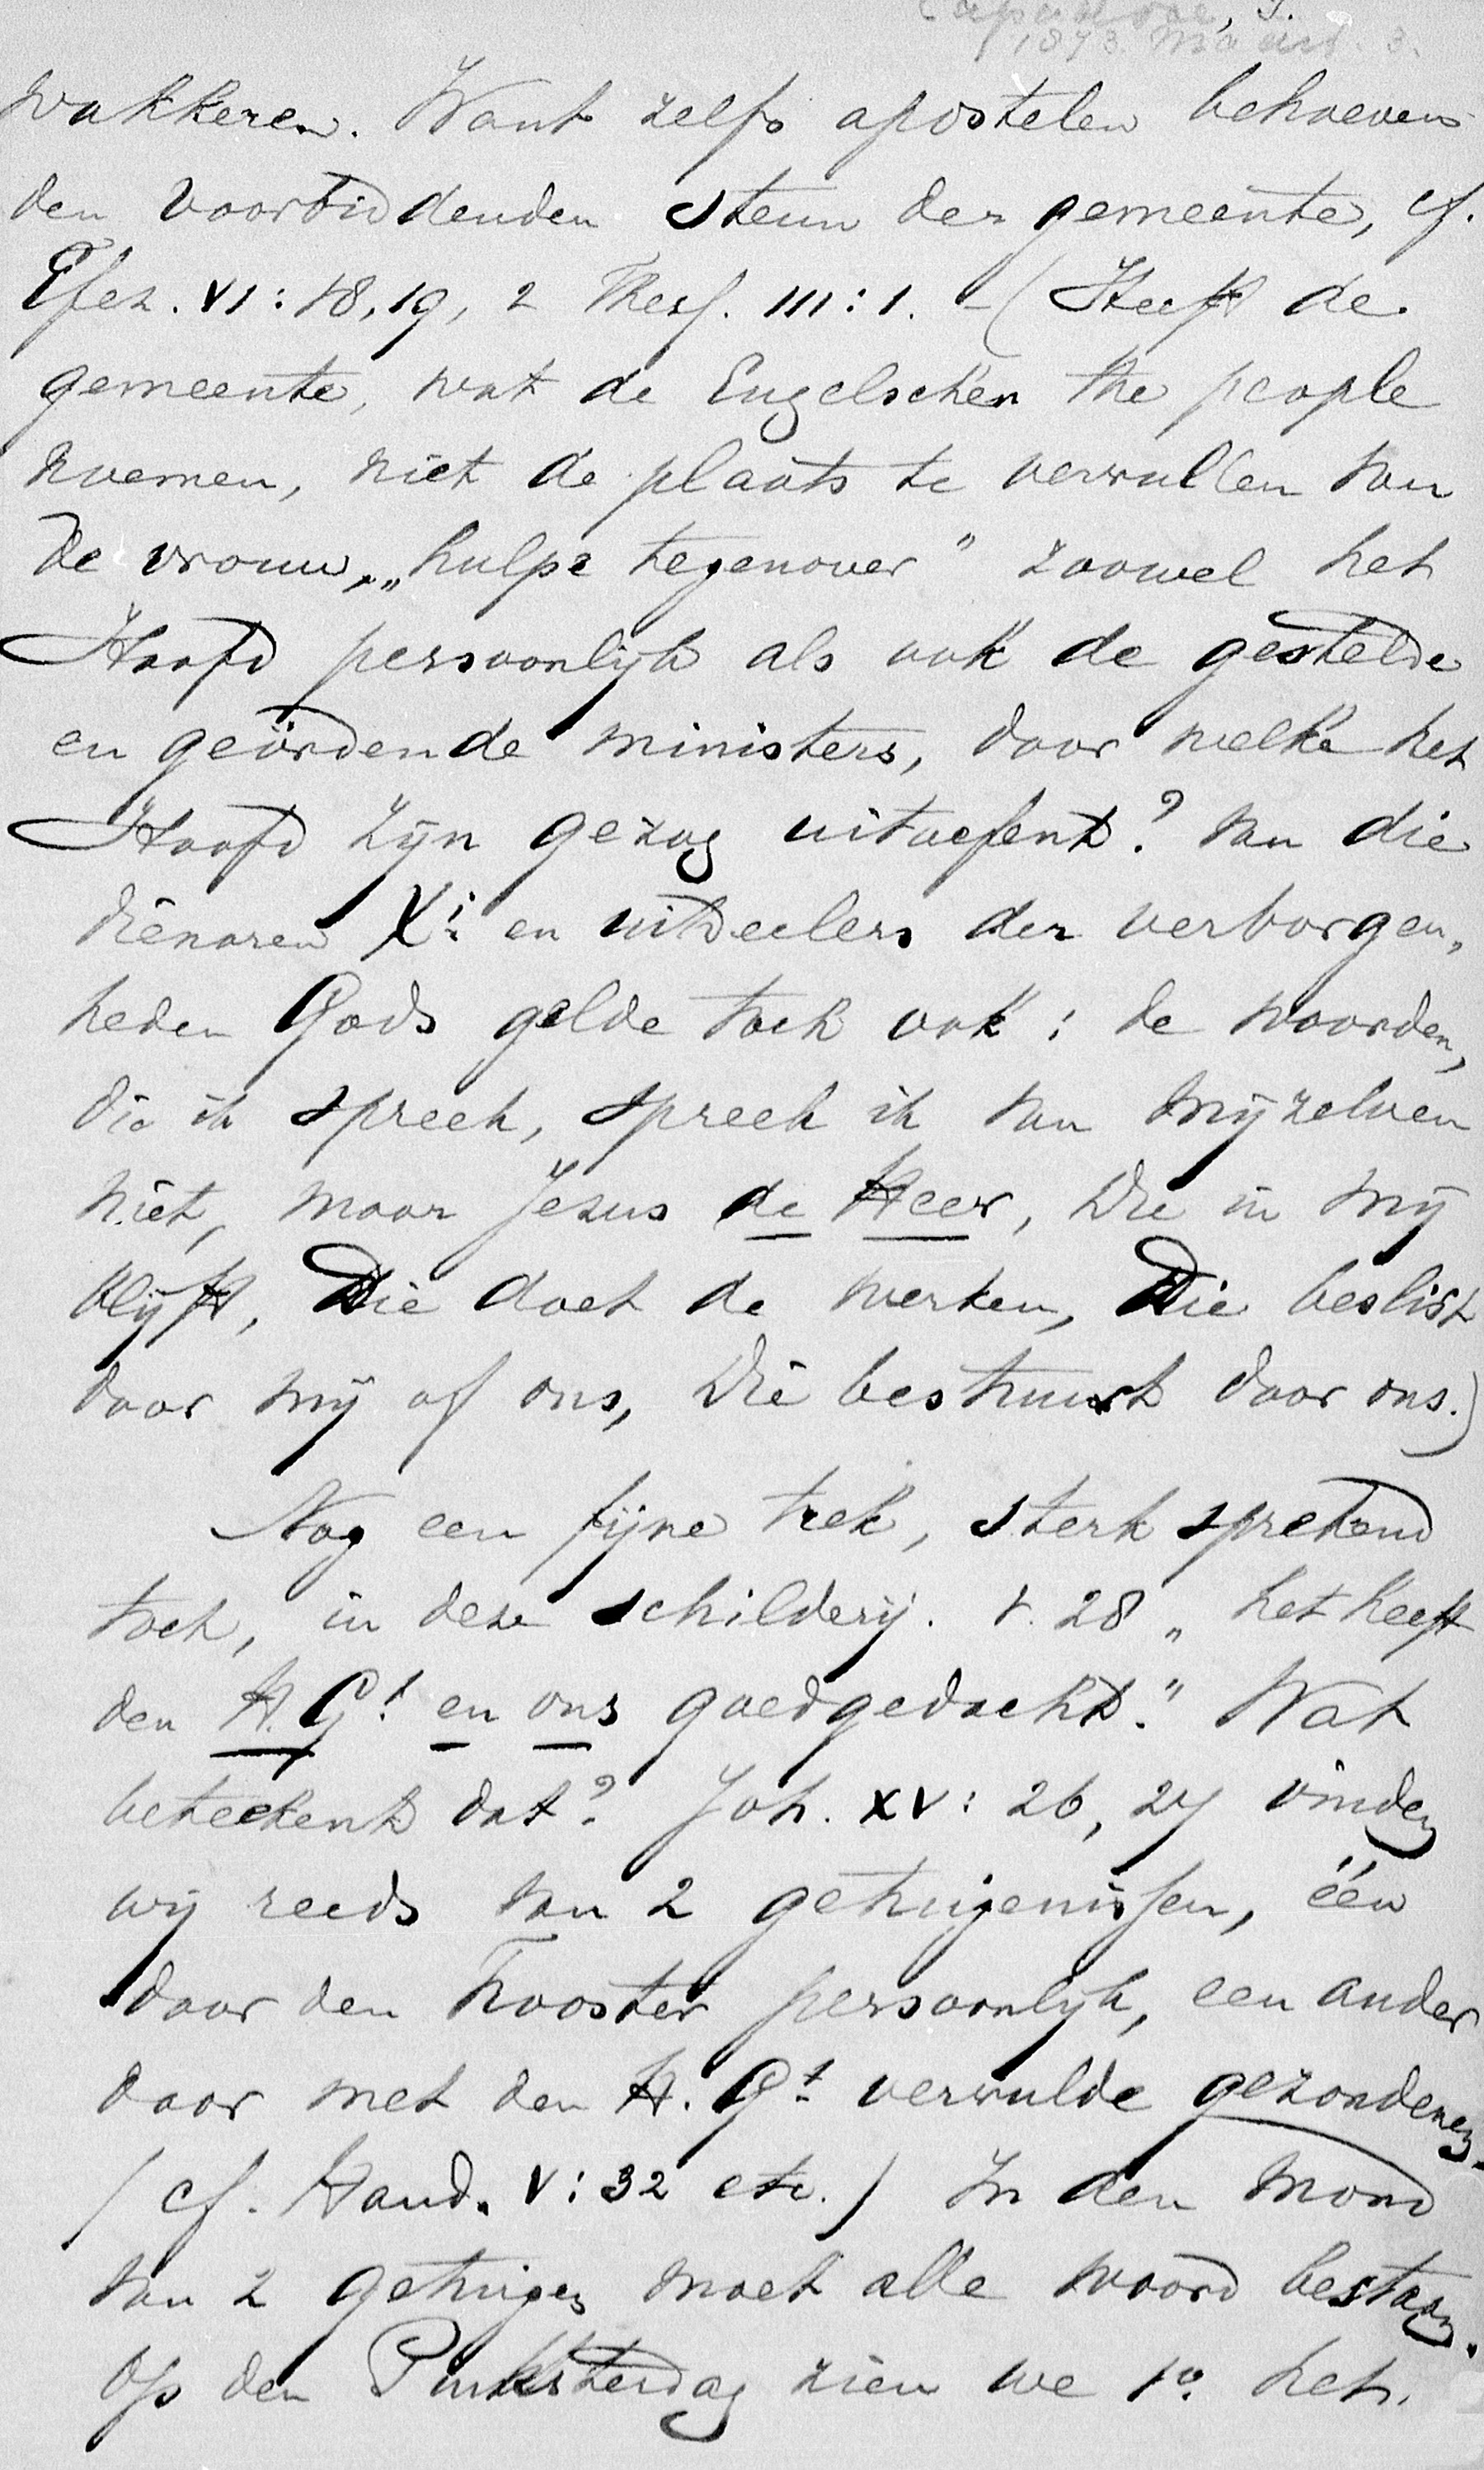 1873. Maart. 3.
wakkeren. Want zelfs apostelen behoeven
den voorbiddenden steun der gemeente, cf.
Efez. VI: 18, 19, 2 Thess. III: 1. – (Heeft de
gemeente, wat de Engelschen the people
noemen, niet de plaats te vervullen van
de vrouw, „hulpe tegenover" zoowel het
Hoofd persoonlijk als ook de gestelde
en geördende ministers, door welke het
Hoofd zijn gezag uitoefent? Van die
dienaren Xi en uitdeelers der verborgen„
heden Gods gelde toch ook: de woorden,
die ik spreek, spreek ik van mijzelven
niet, maar Jezus de Heer, Die in mij
blijft, Die doet de werken, Die beslist
door mij of ons, Die bestuurt door ons.)
Nog een fijne trek, sterk sprekend
toch, in deze schilderij. v. 28 „het heeft
den H. Gt en ons goedgedacht." Wat
beteekent dat? Joh. XV: 26, 27 vinden
wij reeds van 2 getuigenissen, één
door den Trooster persoonlijk, een ander
door met den H. Gt vervulde gezondenen.
(cf. Hand. V: 32 etc.) In den mond
van 2 getuigen moet alle woord bestaan.
Op den Pinksterdag zien we 1o. het